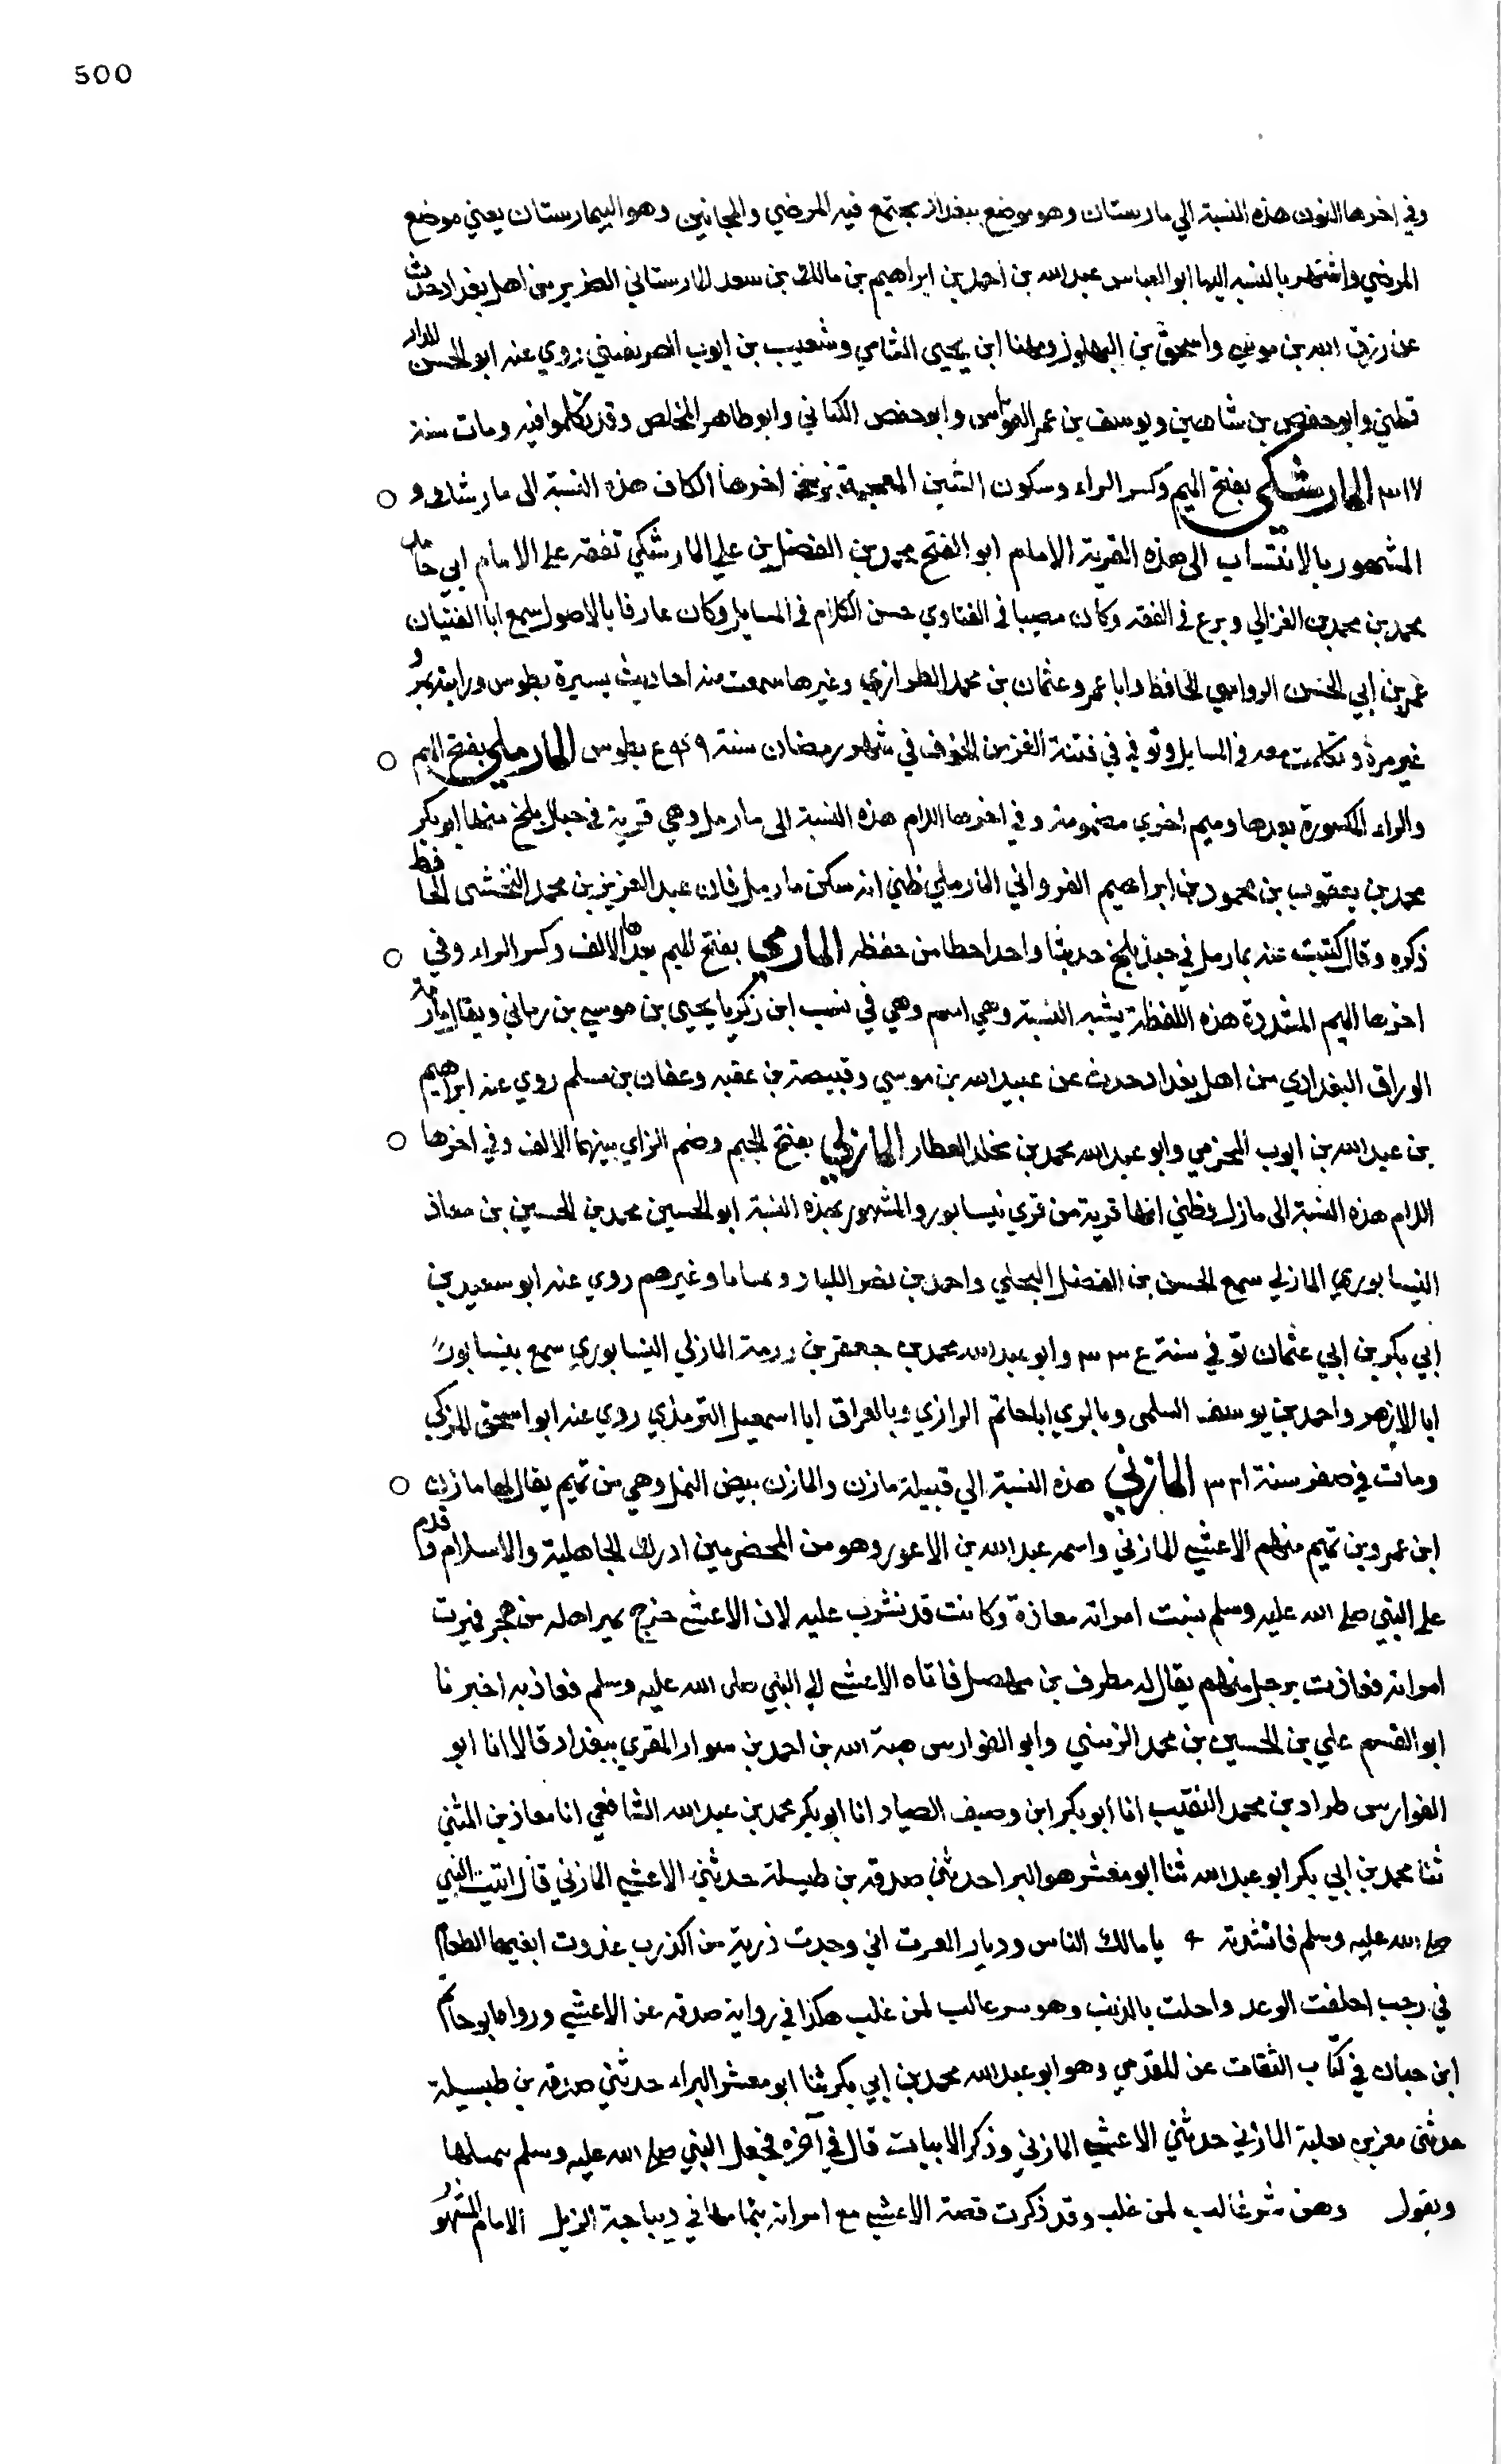 500
وفي اخرها النون هذه النسبة الي مارستان وهو موضع ببغداذ يجتمع فيه المرضي والمجانين وهو البيمارستان يعني موضع
المرضي واشتهر بالنسبه اليها ابو العباس عبد الله بن احمد بن ابراهيم بن مالك بن سعد المارستاني الضرير من اهل بغداد حدث
عن رزق الله بن موسي واسحق بن البهلول ومهنا ابن يحيى الشامي وشعيب بن ايوب الصريفيني روي عنه ابو الحسن الدار
قطني وابو حفص بن شاهين ويوسف بن عمر القواس وابو حفص الكتاني وابو طاهر المخلص وقد تكلموا فيه ومات سنة
٣١٧ المارشكي بفتح الميم وكسر الراء وسكون الشين المعجمة وفي اخرها الكاف هذه النسبة الى مارشك و
المشهور بالانتساب الى هذه القرية الامام ابو الفتح محمد بن الفضل بن علي المارشكي تفقه علي الامام ابي حامد
محمد بن محمد بن الغزالي وبرع في الفقه وكان مصيبا في الفتاوي حسن الكلام في المسايل وكان عارفا بالاصول سمع ابا الفتيان
عمر بن ابي الحسن الرواسي الحافظ وابا عمرو عثمان بن محمد الطرازي وغيرها سمعت منه احاديث يسيرة بطوس ورايته بمرو
غير مرة وتكلمت معه في المسايل وتوفي في فتنة الغز من الخوف في شهر رمضان سنة ٥٤٩ بطوس المارملي بفتح الميم
والراء المكسورة بعدها وميم اخري مضمومة وفي اخرها اللام هذه النسبة الى مارمل وهي قرية في جبال بلخ منها ابو بكر
محمد بن يعقوب بن محمود بن ابراهيم الغرواني المارملي ظني انه سكن مارمل فان عبد العزيز بن محمد النخشبي الحافظ
ذكره وقال كتبت عنه بمارمل في جبل بلخ حديثا واحدا حطا من حفظه المارمي بفتح الميم بعدها الالف وكسر الراء وفي
اخرها الميم المشددة هذه اللفظة يشبه النسبة وهي اسم وهي في نسب ابن زكريا يحيى بن موسي بن رماني ويقال مارمة
الوراق البغدادي من اهل بغداد حدث عن عبيد الله بن موسي وقبيصة بن عقبه وعفان بن مسلم روي عنه ابراهيم
بن عبد الله بن ايوب المخرمي وابو عبد الله محمد بن مخلد العطار المازلي بفتح الميم وضم الزاي بينهما الالف وفي اخرها
اللام هذه النسبة الى مازل وظني انها قرية من قري نيسابور والمشهور بهذه النسبة ابو الحسين محمد بن الحسين بن معاذ
النيسابوري المازلي سمع الحسن بن الفضل البجلي واحمد بن نصر اللباد وغيرهم روي عنه ابو سعيد بن
ابي بكر بن ابي عثمان توفي سنة ٣٣٤ وابو عبد الله محمد بن جعفر بن المازلي النيسابوري سمع بنيسابور
ابا الازهر واحمد بن يوسف السلمى وبالري ابا حاتم الرازي وبالعراق ابا اسمعيل الترمذي روي عنه ابو اسحق المزكي
ومات في صفر سنة ٣٣١ المازني هذه النسبة الي قبيلة مازن والمازن بيض النمل وهي من تميم يقال لها مازن
ابن عمرو بن تميم منهم الاعشي المازني واسمه عبد الله بن الاعور وهو من المخضرمين ادرك الجاهلية والاسلام وقدم
علي النبي صلي الله عليه وسلم بسبب امراته معاذة وكانت قد نشزت عليه لان الاعشي خرج يمير اهله من هجر فهربت
امراته فعاذت برجل منهم يقال له مطرف بن فاتاه الاعشي الي النبي صلى الله عليه وسلم فعاذ به اخبرنا
ابو القسم علي بن الحسين بن محمد الزينبي وابو الفوارس هبة الله بن احمد بن سوار المقري ببغداد قالا انا ابو
الفوارس طراد بن محمد النقيب انا ابو بكر ابن وصيف الصياد انا ابو بكر محمد بن عبد الله الشافعي انا معاذ بن المثني
ثنا محمد بن ابي بكر ابو عبد الله ثنا ابو معشر هو البرا حدثني صدقه بن طيسلة حدثني الاعشي المازني قال اتيت النبي
صلي الله عليه وسلم فانشدته يا مالك الناس وديار العرب اني وجدت ذرية من الذرب غدوت ابغيها الطعام
في رجب اخلفت الوعد بالذنب وهو سر غالب لمن غلب هكذا في رواية صدقه عن الاعشي ورواه ابو حاتم
ابن حبان في كتاب الثقات عن المقدمي وهو ابو عبد الله محمد بن ابي بكر ثنا ابو معشر البراء حدثني صدقه بن طيسلة
حدثني معن بن ثعلبة المازني حدثني الاعشي المازني وذكر الابيات قال في آخره فجعل النبي صلي الله عليه وسلم يتمثلها
ويقول وهن شر غالب لمن غلب وقد ذكرت قصة الاعشي مع امراته بتمامها في ديباجة الذيل الامام المشهور